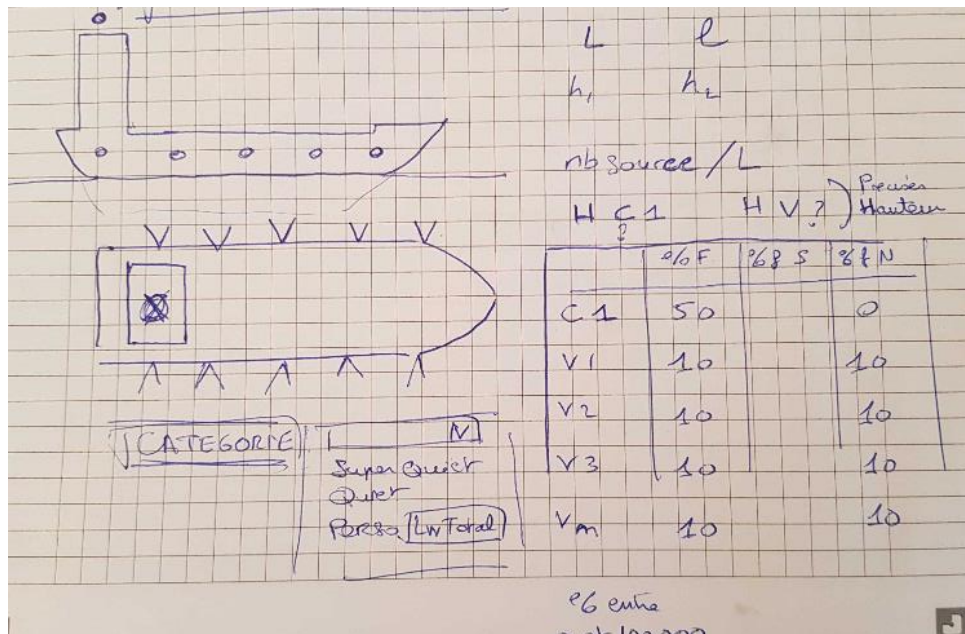 L l
h₁ h₂
nb source / L
H C1 H V ? ) Preciser
? Hauteur
% F % S % N
C1 50 0
V1 10 10
V2 10 10
V3 10 10
Vn 10 10
CATEGORIE
Super Quiet
Quiet
Perso Lw Total
% entre